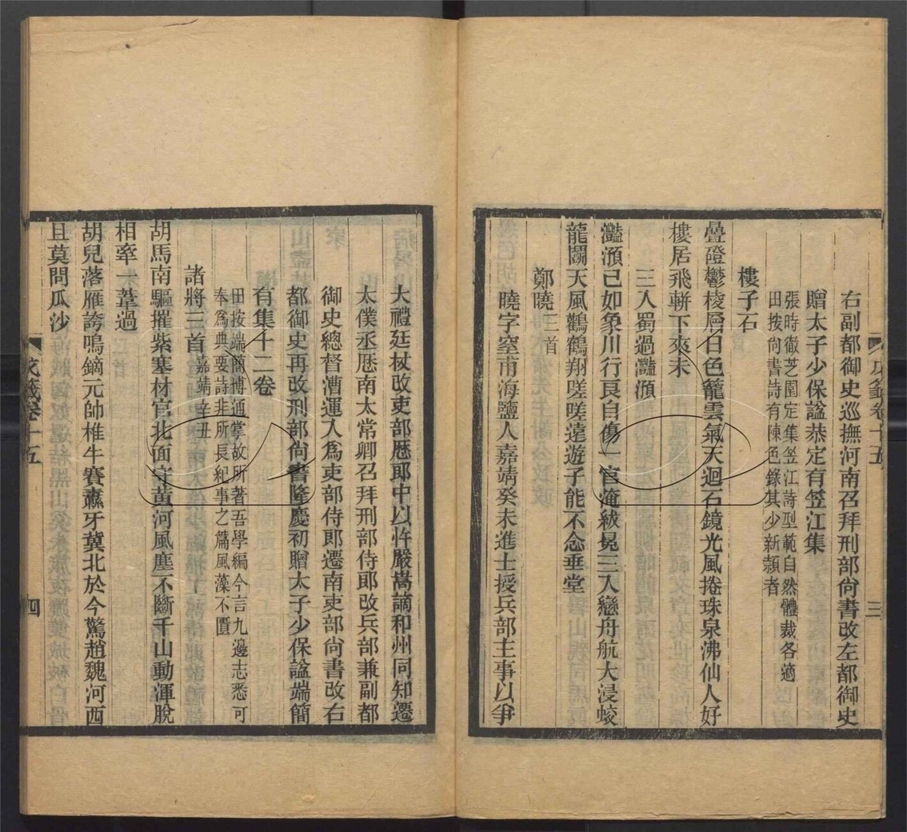 右副都御史巡撫河南召拜刑部尚書改左都御史
贈太子少保諡恭定有笠江集
張時徹芝園定集笠江詩型範自然體裁各適
田按尚書詩有陳色錄其少新穎者
樓子石
疊證鬱棱層日色籠雲氣天迴石鏡光風捲珠泉沸仙人好
樓居飛軿下來未
三入蜀過灩澦
灩澦已如象川行良自傷一官淹紱冕三入戀舟航大浸蛟
龍鬭天風鸛鶴翔嗟嗟遠遊子能不念垂堂
鄭曉三首
曉字窒甫海鹽人嘉靖癸未進士授兵部主事以爭
三
大禮廷杖改吏部歷郎中以忤嚴嵩謫和州同知遷
太僕丞歷南太常卿召拜刑部侍郎改兵部兼副都
御史總督漕運入為吏部侍郎遷南吏部尚書改右
都御史再改刑部尚書隆慶初贈太子少保諡端簡
有集十二卷
田按端簡博通掌故所著吾學編今言九邊志悉可
奉為典要詩非所長紀事之篇風藻不匱
諸將三首嘉靖辛丑
胡馬南驅摧紫塞材官北面守黃河風塵不斷千山動渾脫
相牽一葦過
胡兒落雁誇鳴鏑元帥椎牛賽纛牙冀北於今驚趙魏河西
且莫問瓜沙
戊籤卷十五
四